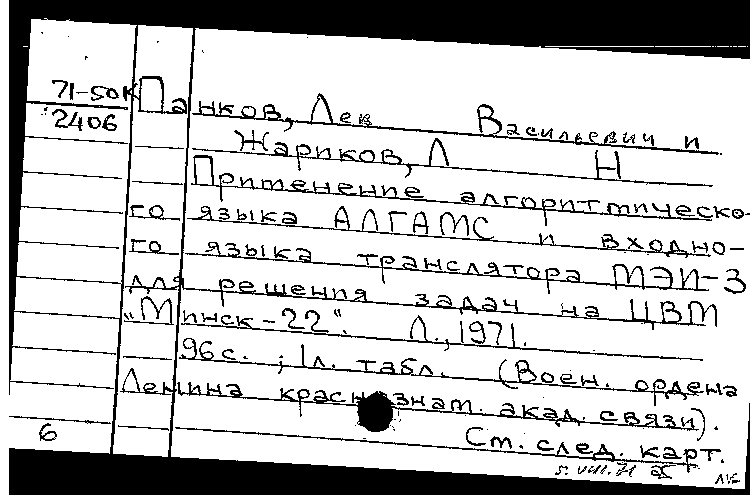 71-50К Панков, Лев Васильевич и
2406 Жариков, Л Н
Применение алгоритмическо-
го языка АЛГАМС и входно-
го языка транслятора МЭИ-3
для решения задач на ЦВМ
"Минск-22". Л., 1971.
96с.; 1л. табл. (Воен. ордена
Ленина краснознам. акад. связи).
6 См. след. карт.
5.VIII.71